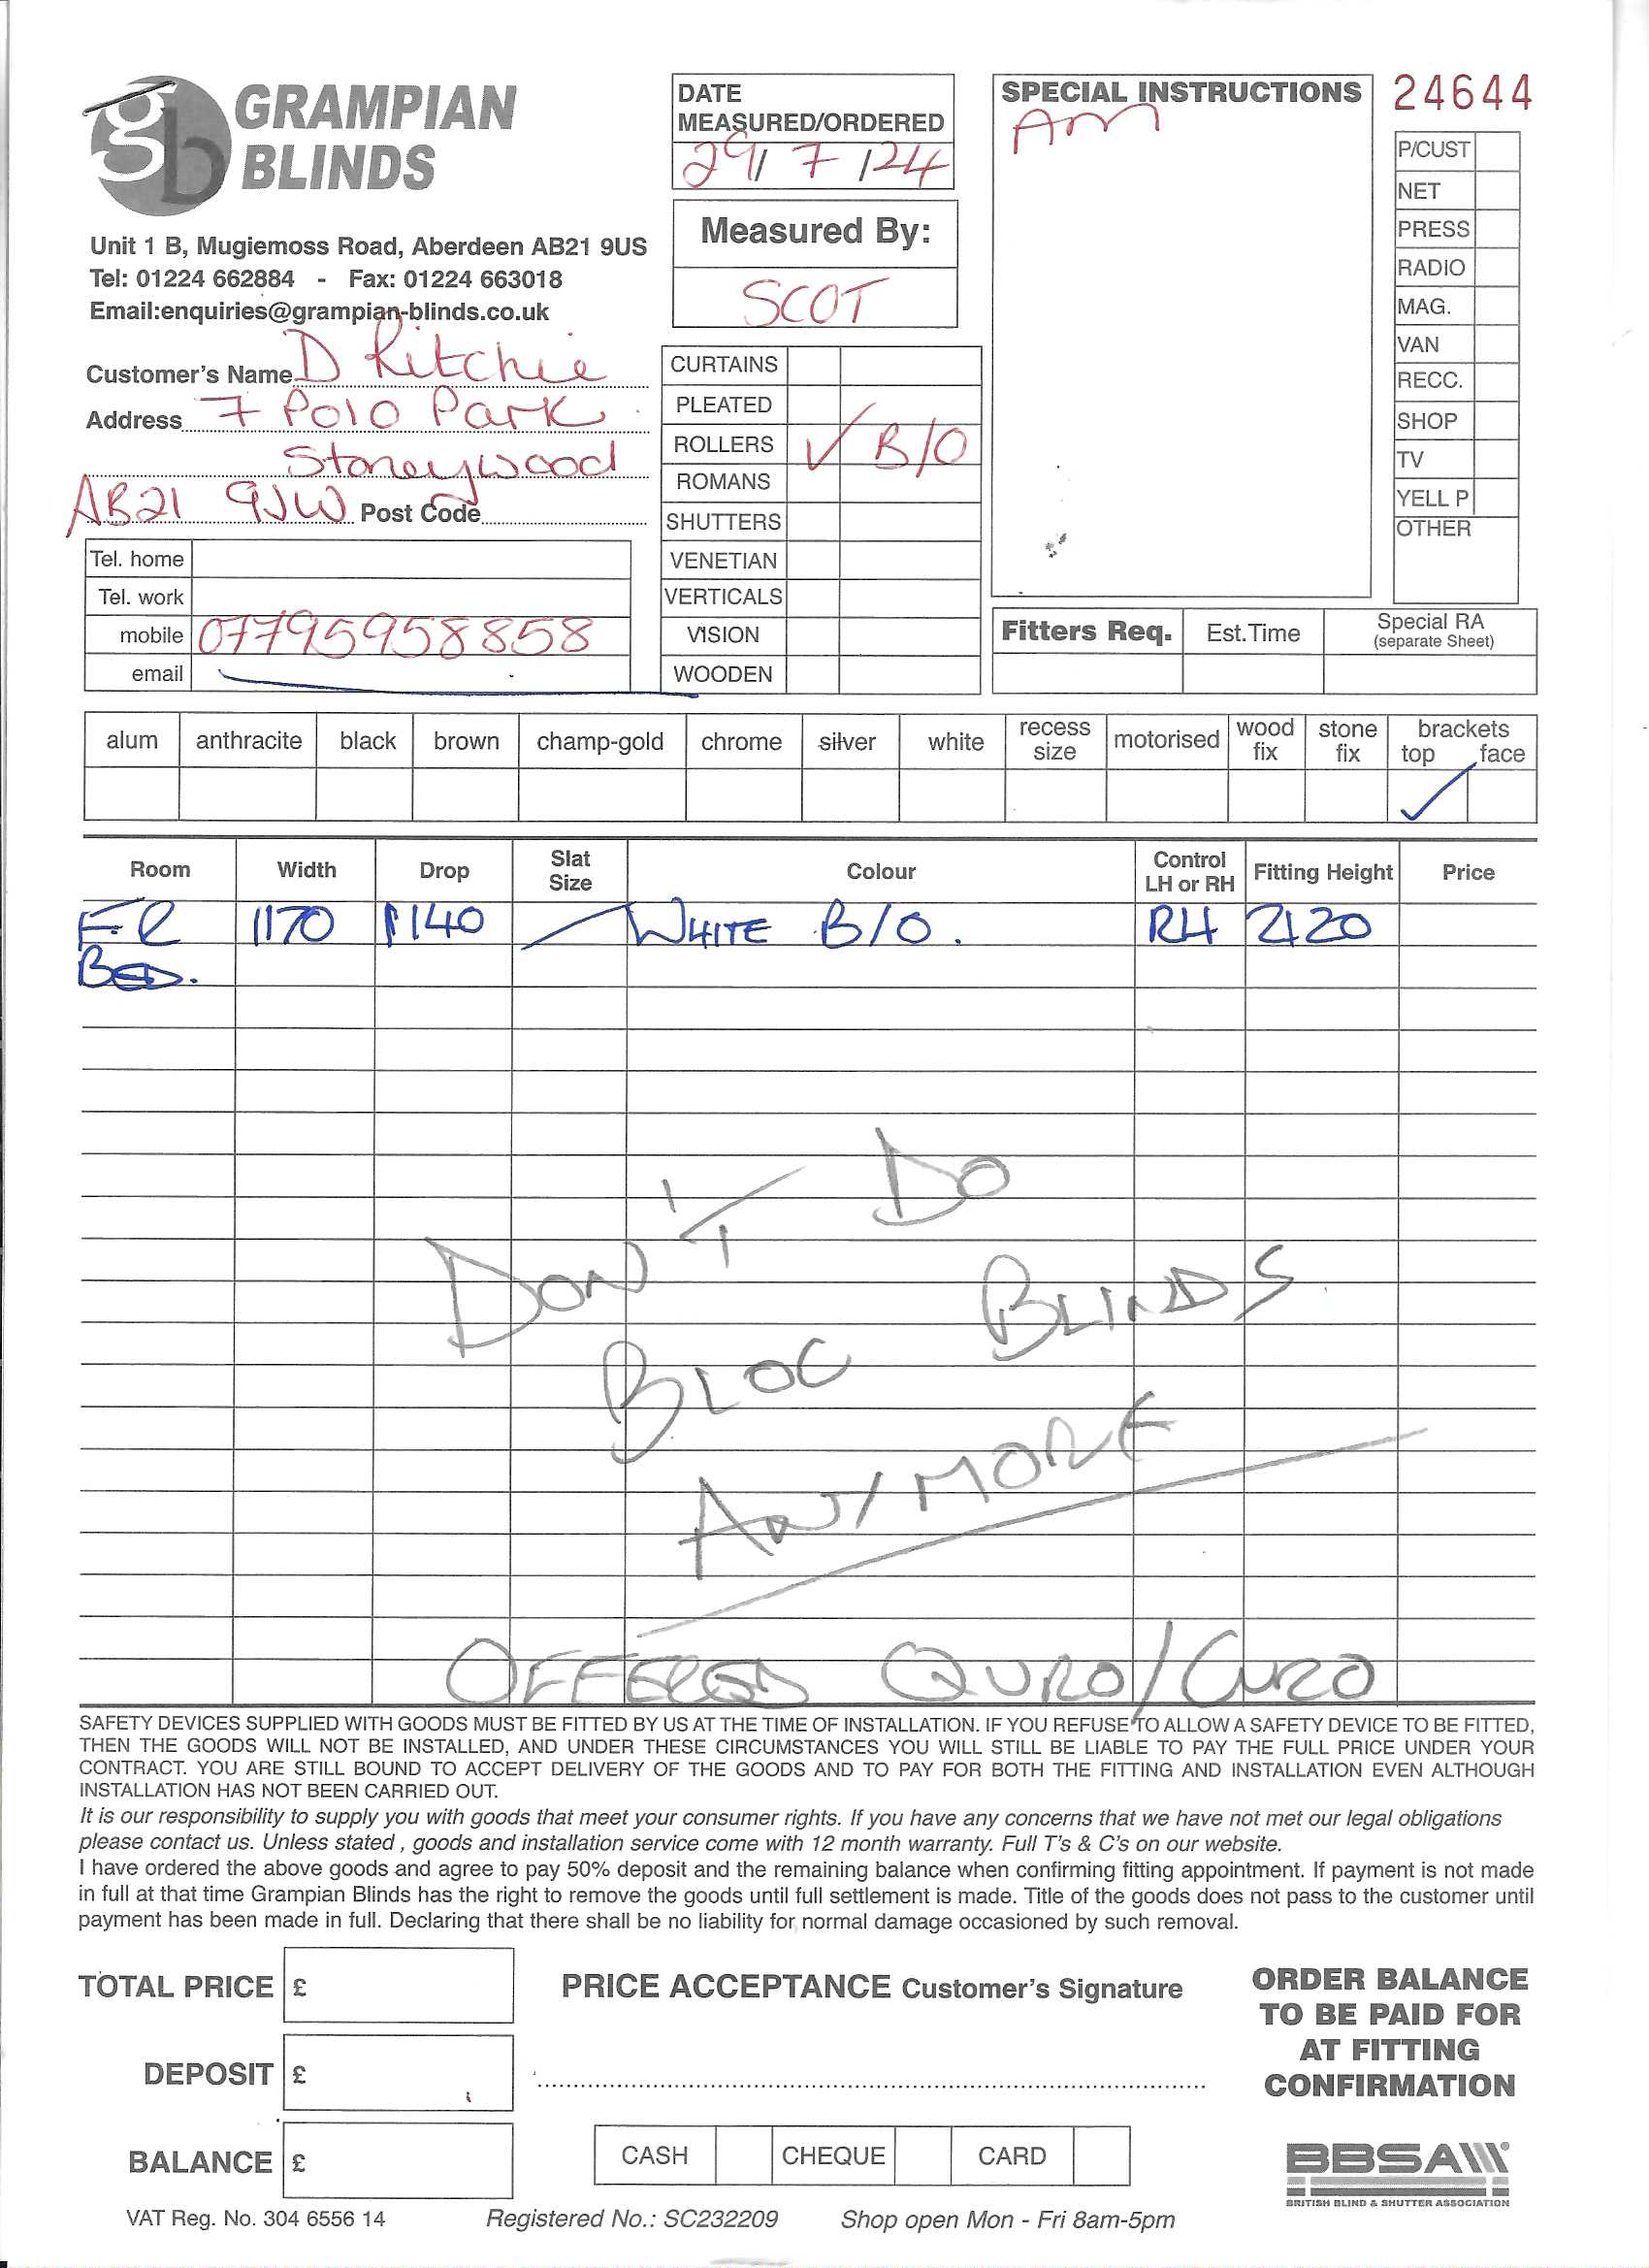 gb GRAMPIAN BLINDS
Unit 1 B, Mugiemoss Road, Aberdeen AB21 9US
Tel: 01224 662884 - Fax: 01224 663018
Email:enquiries@grampian-blinds.co.uk
Customer's Name D Ritchie
Address 7 Polo Park
Stoneywood
AB21 9JW Post Code
Tel. home
Tel. work
mobile 07795958858
email
DATE
MEASURED/ORDERED
29/ 7 /24
Measured By:
SCOT
CURTAINS
PLEATED
ROLLERS ✓ B/O
ROMANS
SHUTTERS
VENETIAN
VERTICALS
VISION
WOODEN
SPECIAL INSTRUCTIONS
AM
24644
P/CUST
NET
PRESS
RADIO
MAG.
VAN
RECC.
SHOP
TV
YELL P
OTHER
Fitters Req. Est.Time Special RA
(separate Sheet)
alum anthracite black brown champ-gold chrome silver white recess size motorised wood fix stone fix brackets top face
✓
Room Width Drop Slat Size Colour Control LH or RH Fitting Height Price
FR 1170 1140 WHITE B/O. RH 2120
BED.
DON'T DO
BLOC BLINDS
ANYMORE
OFFERED QURO/CURO
SAFETY DEVICES SUPPLIED WITH GOODS MUST BE FITTED BY US AT THE TIME OF INSTALLATION. IF YOU REFUSE TO ALLOW A SAFETY DEVICE TO BE FITTED,
THEN THE GOODS WILL NOT BE INSTALLED, AND UNDER THESE CIRCUMSTANCES YOU WILL STILL BE LIABLE TO PAY THE FULL PRICE UNDER YOUR
CONTRACT. YOU ARE STILL BOUND TO ACCEPT DELIVERY OF THE GOODS AND TO PAY FOR BOTH THE FITTING AND INSTALLATION EVEN ALTHOUGH
INSTALLATION HAS NOT BEEN CARRIED OUT.
It is our responsibility to supply you with goods that meet your consumer rights. If you have any concerns that we have not met our legal obligations
please contact us. Unless stated , goods and installation service come with 12 month warranty. Full T's & C's on our website.
I have ordered the above goods and agree to pay 50% deposit and the remaining balance when confirming fitting appointment. If payment is not made
in full at that time Grampian Blinds has the right to remove the goods until full settlement is made. Title of the goods does not pass to the customer until
payment has been made in full. Declaring that there shall be no liability for normal damage occasioned by such removal.
TOTAL PRICE £
DEPOSIT £
BALANCE £
PRICE ACCEPTANCE Customer's Signature
CASH CHEQUE CARD
ORDER BALANCE
TO BE PAID FOR
AT FITTING
CONFIRMATION
BBSA
BRITISH BLIND & SHUTTER ASSOCIATION
VAT Reg. No. 304 6556 14 Registered No.: SC232209 Shop open Mon - Fri 8am-5pm